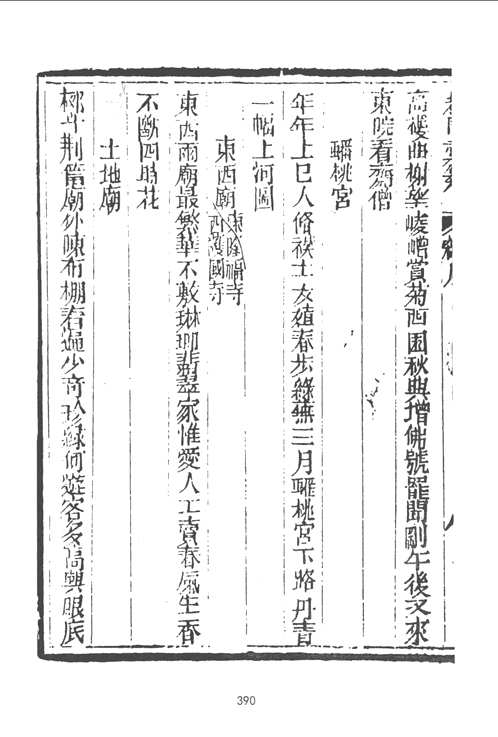 高樓曲榭築崚嶒賞菊西園秋興增佛號罷聞剛午後又來
東院看齋僧
蟠桃宮
年年上巳人脩禊士女嬉春步綠蕪三月蟠桃宮下路丹青
一幅上河圖
東西廟東隆福寺西護國寺
東西兩廟最繁華不數琳瑯翡翠家惟愛人工賣春風生香
不斷四時花
土地廟
柳斗荊筐廟外陳布棚看遍少奇珍緣何遊客多高興眼底
390